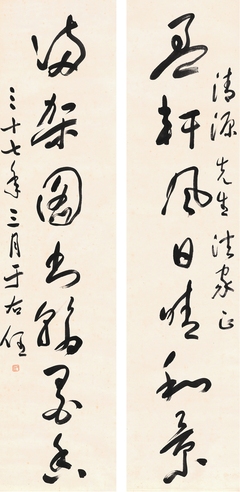 清源先生法家正
盈軒風日晴和景
滿架圖書翰墨香
三十七年三月于右任